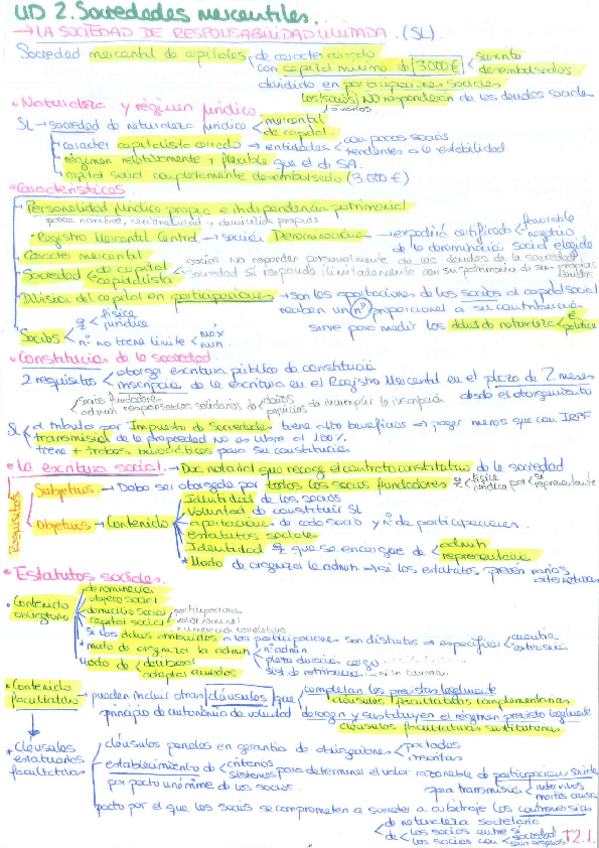 UD 2. Sociedades mercantiles.
→ LA SOCIEDAD DE RESPONSABILIDAD LIMITADA. (SL).
Sociedad mercantil de capitales, de carácter cerrado
con capital mínimo de 3000€ < suscrito
desembolsados
dividido en participaciones sociales
los socios NO responderán de las deudas sociales
• Naturaleza y régimen jurídico
SL → sociedad de naturaleza jurídica < mercantil
de capital.
carácter capitalista cerrado → entidades < con pocos socios
tendentes a la estabilidad
régimen relativamente + flexible que el de SA.
capital social completamente desembolsado (3.000€)
• Características.
Personalidad jurídica propia e independencia patrimonial
posee nombre, nacionalidad y domicilio propios
Registro Mercantil Central → sección Denominaciones → expedirá certificado < favorable
negativo
de la denominación social elegida
Carácter mercantil
Sociedad < de capital
capitalista
socios no responder personalmente de las deudas de la sociedad
sociedad sí responde ilimitadamente con su patrimonio de sus propias deudas
División del capital en participaciones → son las aportaciones de los socios al capital social
reciben un nº proporcional a su contribución
sirve para medir los dchos de naturaleza < €
política
Socios < física
jurídica
nº no tiene límite < máx
mín.
• Constitución de la sociedad.
2 requisitos < otorgar escritura pública de constitución
inscripción de la escritura en el Registro Mercantil en el plazo de 2 meses
desde el otorgamiento
socios fundadores
admin responsables solidarios de < daños
perjuicios de incumplir la inscripción
SL tributa por Impuesto de Sociedades tiene alto beneficios → pagar menos que con IRPF
transmisión de la propiedad no es libre al 100%.
tiene + trabas burocráticas para su constitución
• La escritura social. → Doc notarial que recoge el contrato constitutivo de la sociedad
Requisitos
Subjetivos. → Debe ser otorgada por todos los socios fundadores < física
jurídica por < sí
representante
Objetivos → Contenido
Identidad de los socios
Voluntad de constituir SL
aportaciones de cada socio y nº de participaciones.
estatutos sociales
Identidad que se encargue de < admin
representación
* Modo de organizar la admin → si los estatutos prevén varias
alternativas
• Estatutos sociales.
• Contenido
obligatorio
denominación
objeto social
domicilio social
capital social < participaciones
valor nominal
numeración correlativa
si los dchos atribuidos a las participaciones son distintos → especificar < cuantía
extensión
* modo de organizar la admin < nº admin
plazo duración cargo
sist. de retribución
Modo de < deliberar
adoptar acuerdos
• Contenido
facultativo → pueden incluir otras cláusulas que
principio de autonomía de voluntad
completan las previstas legalmente
cláusulas facultativas complementarias
derogan y sustituyen el régimen previsto legalmente
cláusulas facultativas sustitutivas
* Cláusulas
estatutarias
facultativas
cláusulas penales en garantía de obligaciones < pactadas
inscritas
establecimiento de < criterios
sistemas para determinar el valor razonable de participaciones sociales
por pacto unánime de los socios.
para transmisión < inter vivos
mortis causa
pacto por el que los socios se comprometen a someter a arbitraje las controversias
de naturaleza societaria
de < los socios entre sí
los socios con < sociedad
sus órganos
T2.1.